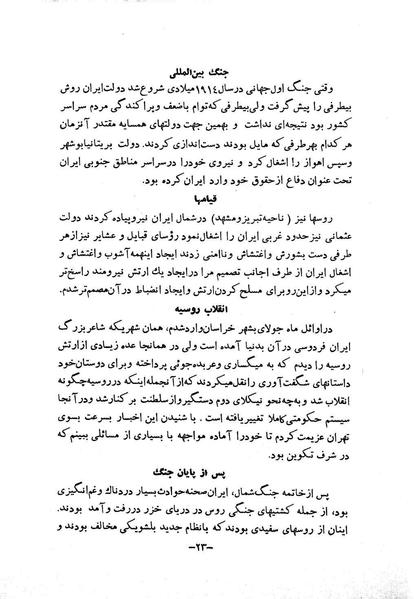 جنگ بین‌المللی
وقتی جنگ اول جهانی در سال ۱۹۱۴ میلادی شروع شد دولت ایران روش
بیطرفی را پیش گرفت ولی بیطرفی که توام باضعف و پراکندگی مردم سراسر
کشور بود نتیجه‌ای نداشت و بهمین جهت دولتهای همسایه مقتدر آنزمان
هر کدام بهر طرفی که مایل بودند دست‌اندازی کردند. دولت بریتانیا بوشهر
و سپس اهواز را اشغال کرد و نیروی خود را در سراسر مناطق جنوبی ایران
تحت عنوان دفاع از حقوق خود وارد ایران کرده بود.
قیامها
روسها نیز ( ناحیه تبریز و مشهد ) در شمال ایران نیرو پیاده کردند دولت
عثمانی نیز حدود غربی ایران را اشغال نمود رؤسای قبایل و عشایر نیز از هر
طرفی دست بشورش و اغتشاش و ناامنی زدند ایجاد اینهمه آشوب و اغتشاش و
اشغال ایران از طرف اجانب تصمیم مرا در ایجاد یك ارتش نیرومند راسخ‌تر
میکرد و از این رو برای مسلح کردن ارتش و ایجاد انضباط در آن مصمم‌تر شدم.
انقلاب روسیه
در اوائل ماه جولای بشهر خراسان وارد شدم، همان شهریکه شاعر بزرگ
ایران فردوسی در آن بدنیا آمده است ولی در همانجا عده زیادی از ارتش
روسیه را دیدم که به میگساری و عربده‌جوئی پرداخته و برای دوستان خود
داستانهای شگفت‌آوری را نقل میکردند که از آنجمله اینکه در روسیه چگونه
انقلاب شد و به چه نحو نیکلای دوم دستگیر و از سلطنت برکنار شد و در آنجا
سیستم حکومتی کاملا تغییر یافته است . با شنیدن این اخبار بسرعت بسوی
تهران عزیمت کردم تا خود را آماده مواجهه با بسیاری از مسائلی ببینم که
در شرف تکوین بود.
پس از پایان جنگ
پس از خاتمه جنگ شمال، ایران صحنه حوادث بسیار دردناك و غم‌انگیزی
بود، از جمله کشتیهای جنگی روس در دریای خزر در رفت و آمد بودند.
اینان از روسهای سفیدی بودند که با نظام جدید بلشویکی مخالف بودند و
-۲۳-